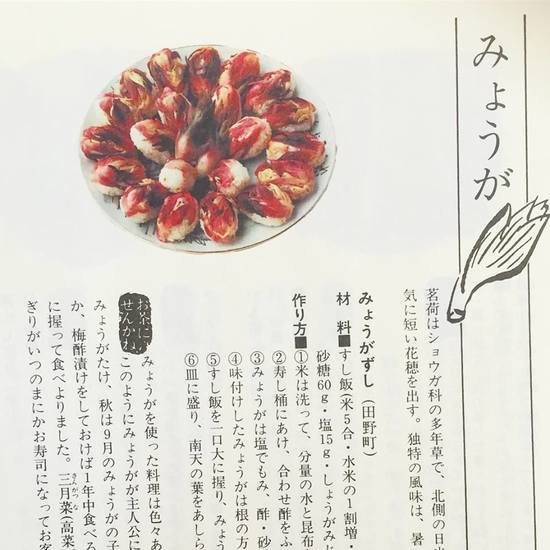 みょうが
茗荷はショウガ科の多年草で、北側の日当
気に短い花穂を出す。独特の風味は、暑
みょうがずし（田野町）
材　料■すし飯（米5合・水米の1割増・
砂糖60g・塩15g・しょうがみじ
作り方■①米は洗って、分量の水と昆布
②寿し桶にあけ、合わせ酢をふ
③みょうがは塩でもみ、酢・砂
④味付けしたみょうがは根の方
⑤すし飯を一口大に握り、みょう
⑥皿に盛り、南天の葉をあしら
お茶にしませんかね
みょうがを使った料理は色々あ
このようにみょうがが主人公に
みょうがたけ、秋は9月のみょうがの子
か、梅酢漬けをしておけば1年中食べる
に握って食べよりました。三月菜(高菜で
ぎりがいつのまにかお寿司になってお客